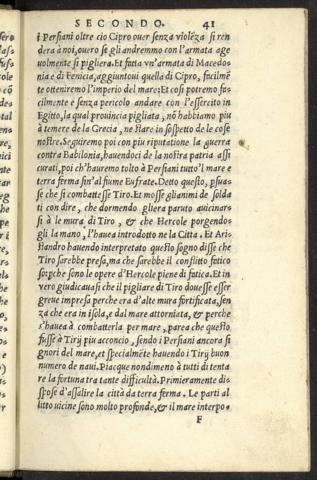 SECONDO. 41
i Persiani oltre cio Cipro ouer senza violẽza si ren
dera à noi, ouero se gli andremmo con l'armata age
uolmente si pigliera. Et fatta vn'armata di Macedo=
nia e di Fenicia, aggiuntoui quella di Cipro, facilmẽ
te otteniremo l'imperio del mare: Et cosi potremo fa=
cilmente e senza pericolo andare con l'essercito in
Egitto, la qual prouincia pigliata, nõ habbiamo piu
à temere de la Grecia, ne stare in sospetto de le cose
nostre. Seguiremo poi con piu riputatione la guerra
contra Babilonia, hauendoci de la nostra patria assi
curati, poi ch'hauremo tolto à Persiani tutto'l mar e
terra ferma fin'al fiume Eufrate. Detto questo, psua=
se che si combattesse Tiro. Et mosse gli animi de solda
ti con dire, che dormendo gliera paruto auuicinar=
si à le mura di Tiro, & che Hercole porgendo=
gli la mano, l'hauea introdotto ne la Città. Et Ari=
standro hauendo interpretato questo sogno disse che
Tiro sarebbe presa, ma che sarebbe il conflitto fatico
so: pche sono le opere d'Hercole piene di fatica. Et in
vero giudicauasi che il pigliare di Tiro douesse esser
greue impresa perche era d'alte mura fortificata, sen
za che era in isola, e dal mare attorniata, & perche
s'hauea à combatterla per mare, parea che questo
fusse à Tirij piu acconcio, sendo i Persiani ancora si
gnori del mare, et specialmẽte hauendo i Tirij buon
numero de naui. Piacque nondimeno à tutti di tenta
re la fortuna tra tante difficultà. Primieramente di=
spose d'assalire la città da terra ferma. Le parti al
litto uicine sono molto profonde, & il mare interpo=
F